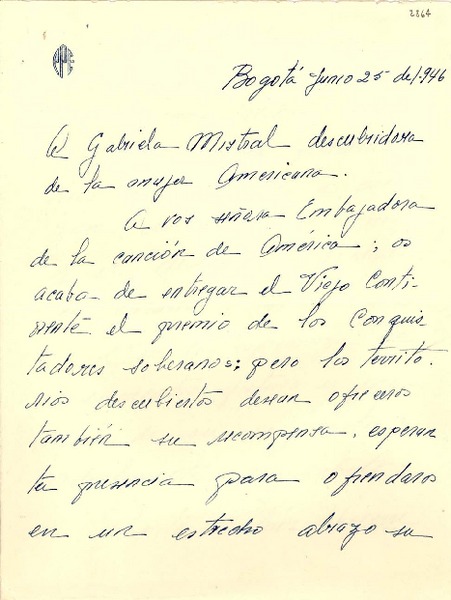 2864
Bogotá Junio 25 de 1.946
A Gabriela Mistral descubridora
de la mujer Americana.
A vos señora Embajadora
de la canción de América; os
acaba de entregar el Viejo Conti-
nente el premio de los Conquis-
tadores soberanos; pero los territo-
rios descubiertos desean ofreceros
también su recompensa, esperan
tu presencia para ofrendaros
en un estrecho abrazo su